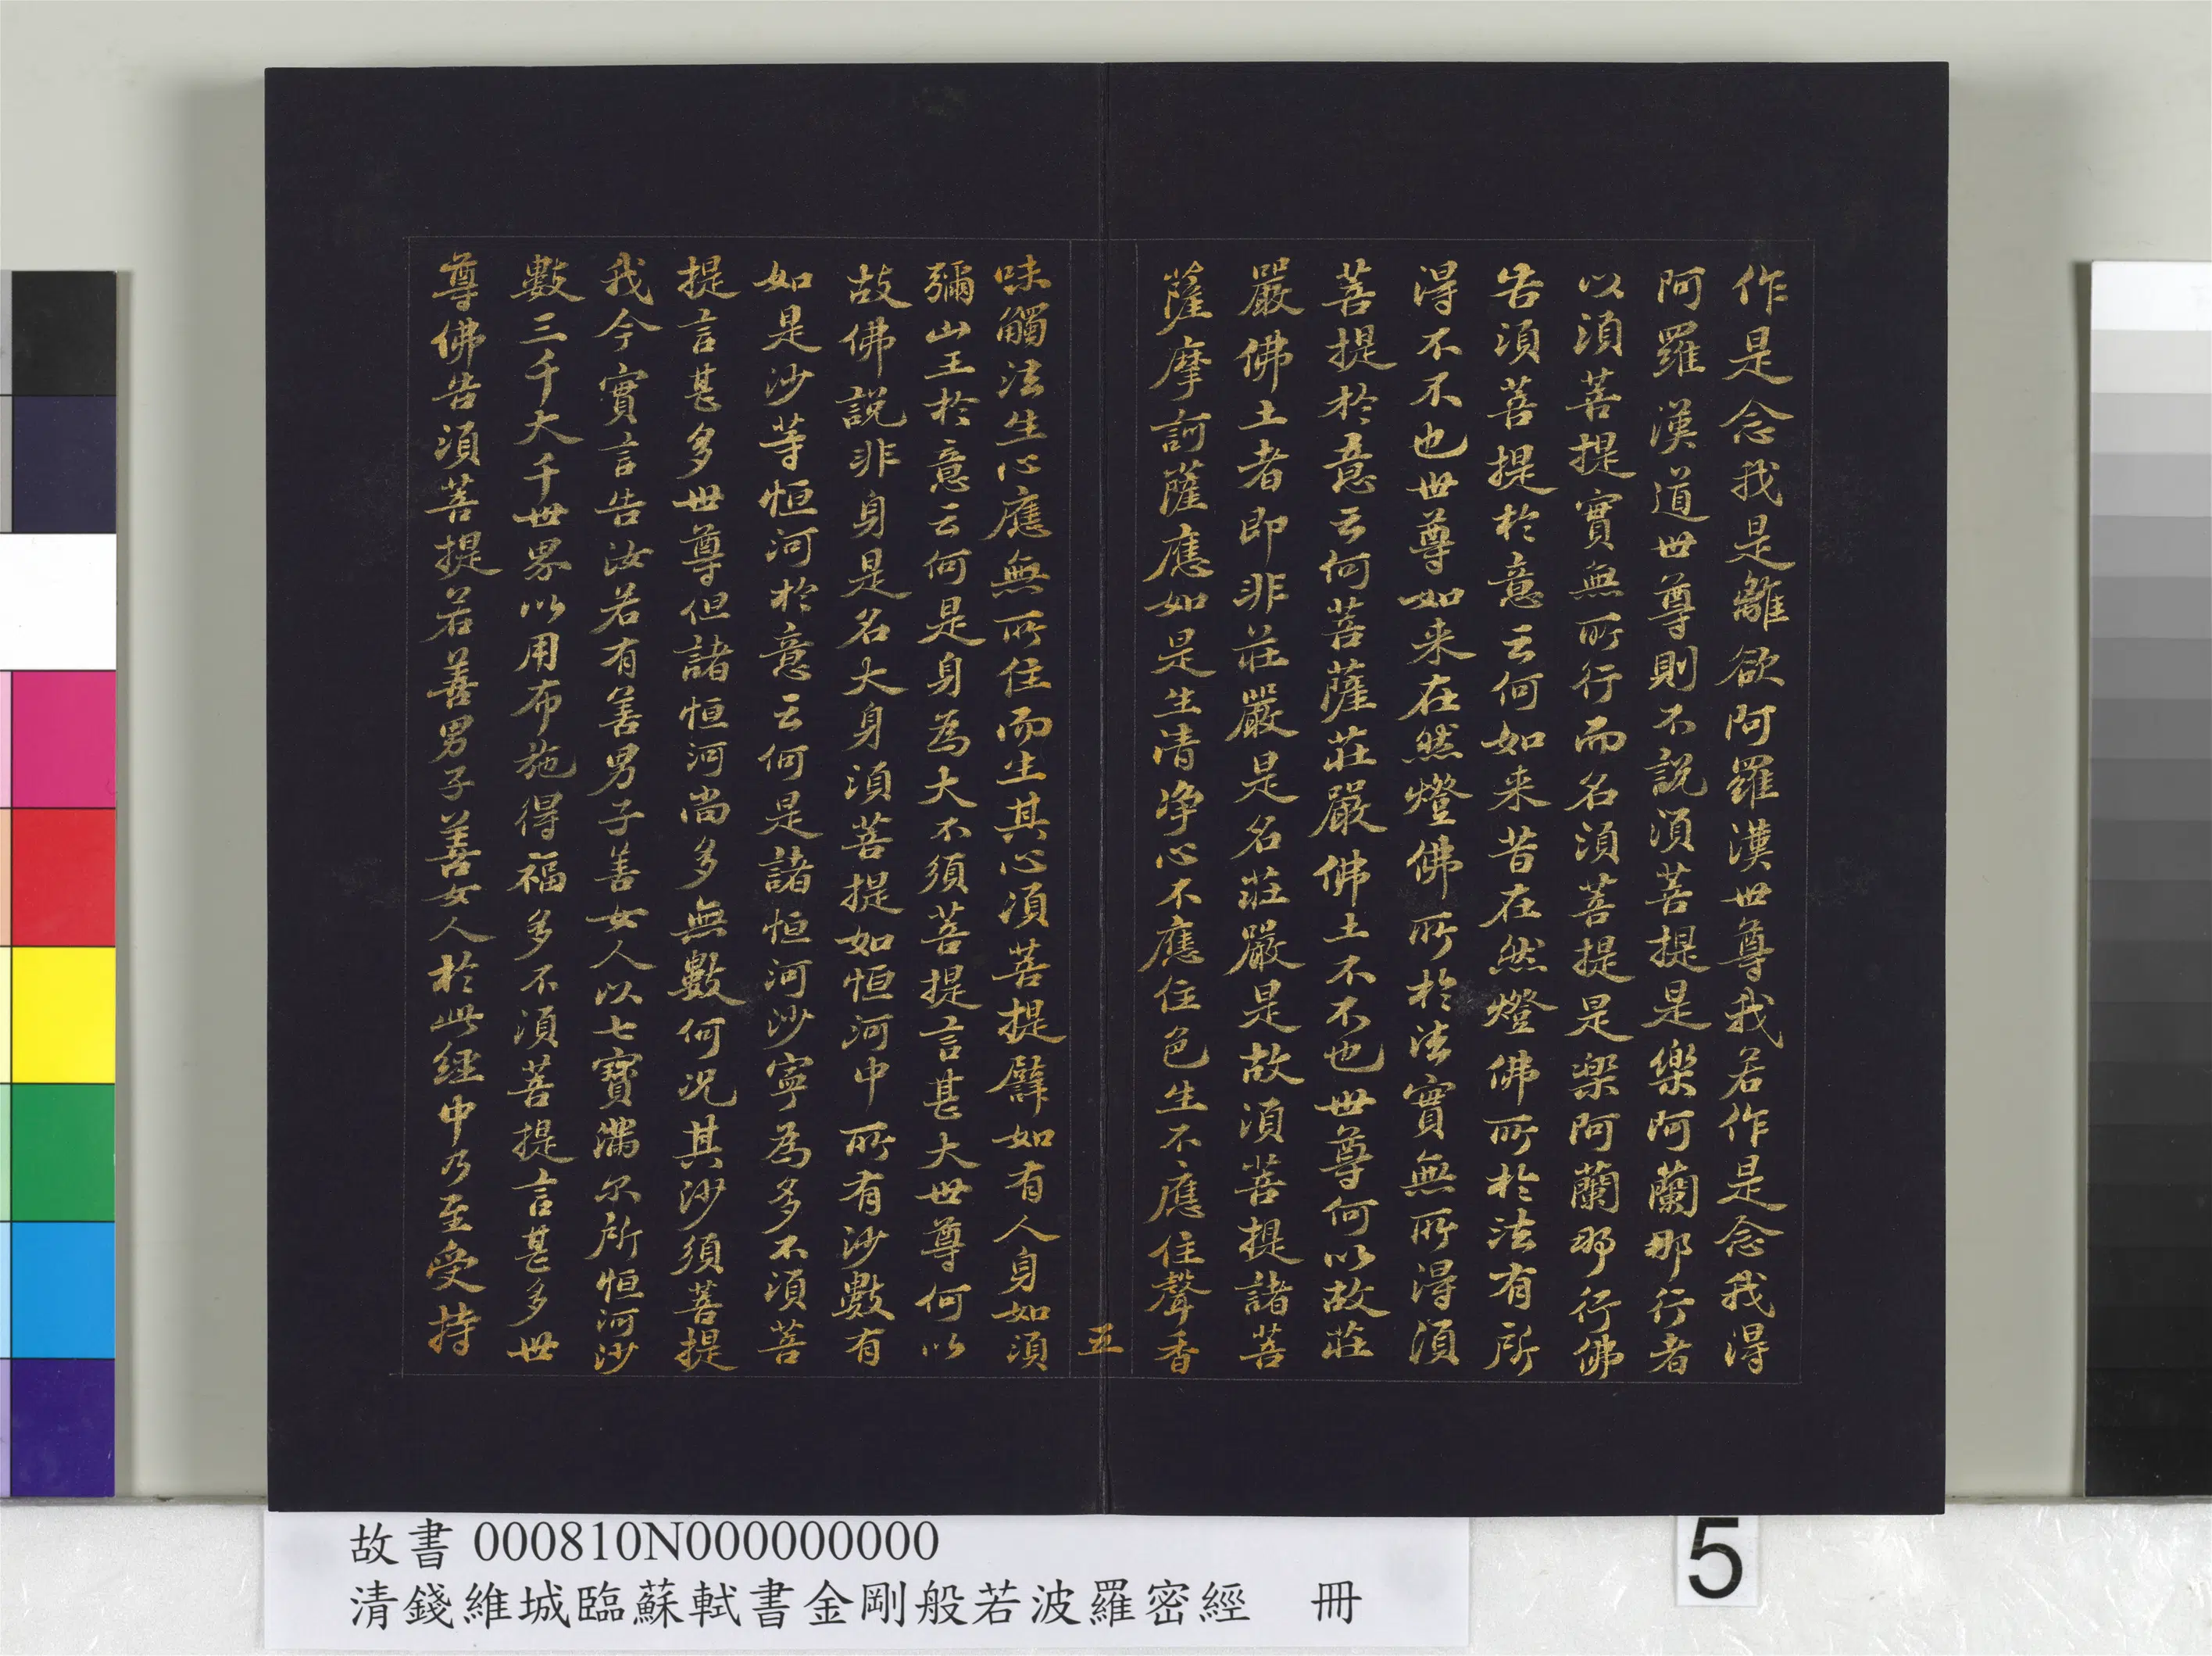 作是念我是離欲阿羅漢世尊我若作是念我得
阿羅漢道世尊則不說須菩提是樂阿蘭那行者
以須菩提實無所行而名須菩提是樂阿蘭那行佛
告須菩提於意云何如来昔在然燈佛所於法有所
得不不也世尊如来在然燈佛所於法實無所得須
菩提於意云何菩薩莊嚴佛土不不也世尊何以故莊
嚴佛土者即非莊嚴是名莊嚴是故須菩提諸菩
薩摩訶薩應如是生清净心不應住色生不應住聲香
五
味觸法生心應無所住而生其心須菩提譬如有人身如須
彌山王於意云何是身為大不須菩提言甚大世尊何以
故佛說非身是名大身須菩提如恒河中所有沙數有
如是沙等恒河於意云何是諸恒河沙寧為多不須菩
提言甚多世尊但諸恒河尚多無數何况其沙須菩提
我今實言告汝若有善男子善女人以七寶滿尔所恒河沙
數三千大千世界以用布施得福多不須菩提言甚多世
尊佛告須菩提若善男子善女人於此經中乃至受持
故書 000810N000000000
清錢維城臨蘇軾書金剛般若波羅密經 冊
5